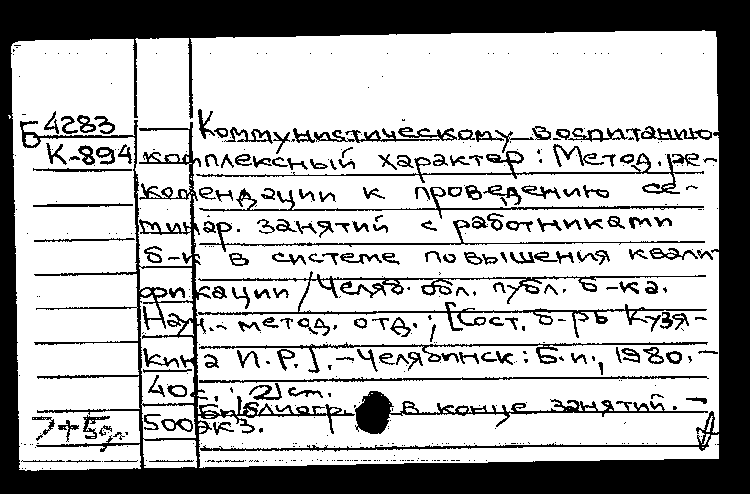 Б 4283
К-894
Коммунистическому воспитанию-
комплексный характер : Метод. ре-
комендации к проведению се-
минар. занятий с работниками
б-к в системе повышения квали
фикации / Челяб. обл. публ. б-ка.
Науч.-метод. отд. ; [Сост. б-рь Кузя-
кина И.Р.]. – Челябинск : Б.и., 1980. –
40с. ; 21 см.
Библиогр. в конце занятий. –
500 экз.